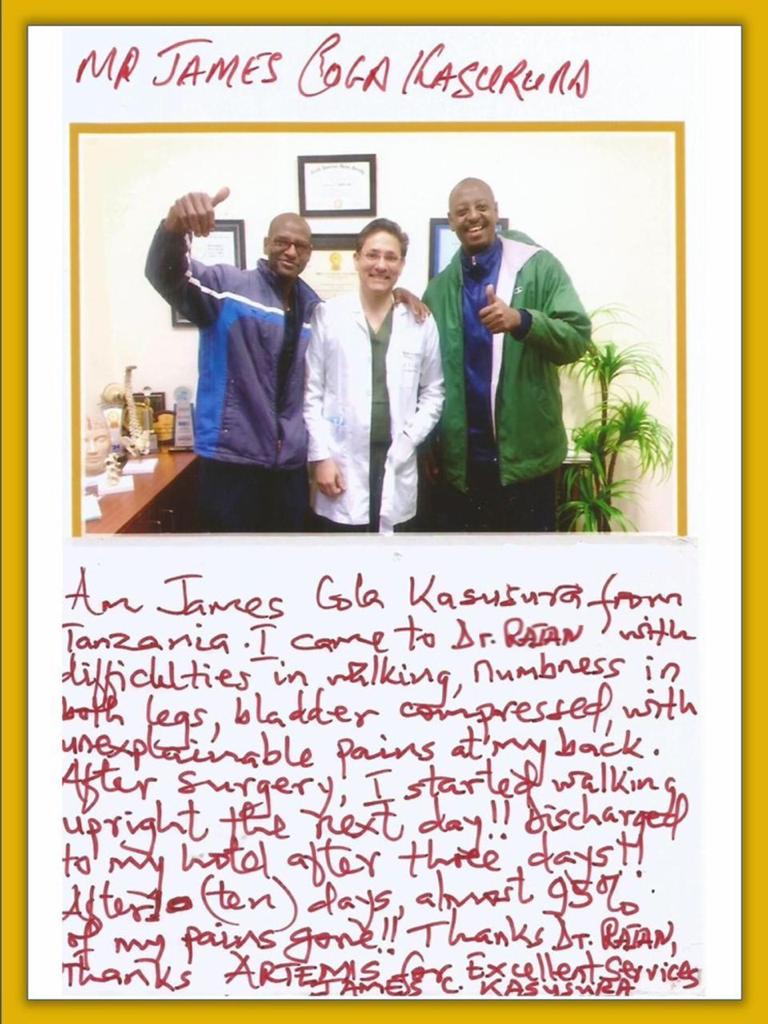 MR JAMES COGA KASURURA
Am James Gola Kasusura from
Tanzania. I came to Dr. RAJAN with
difficulties in walking, numbness in
both legs, bladder compressed, with
unexplainable pains at my back.
After surgery, I started walking
upright the next day!! Discharged
to my hotel after three days!!
After 10 (ten) days, almost 95%
of my pains gone!! Thanks Dr. RAJAN,
Thanks ARTEMIS for Excellent Services
JAMES C. KASUSURA